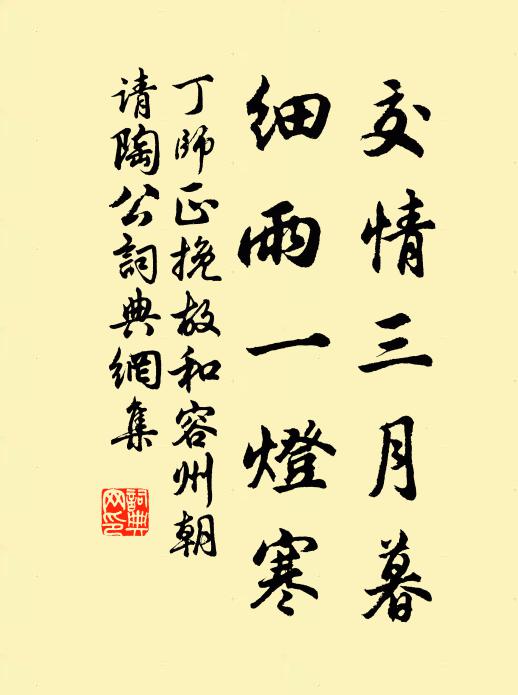 交情三月暮
细雨一燈寒
丁師正挽故和容州朝
请陶公詞典網集
詞典
网印